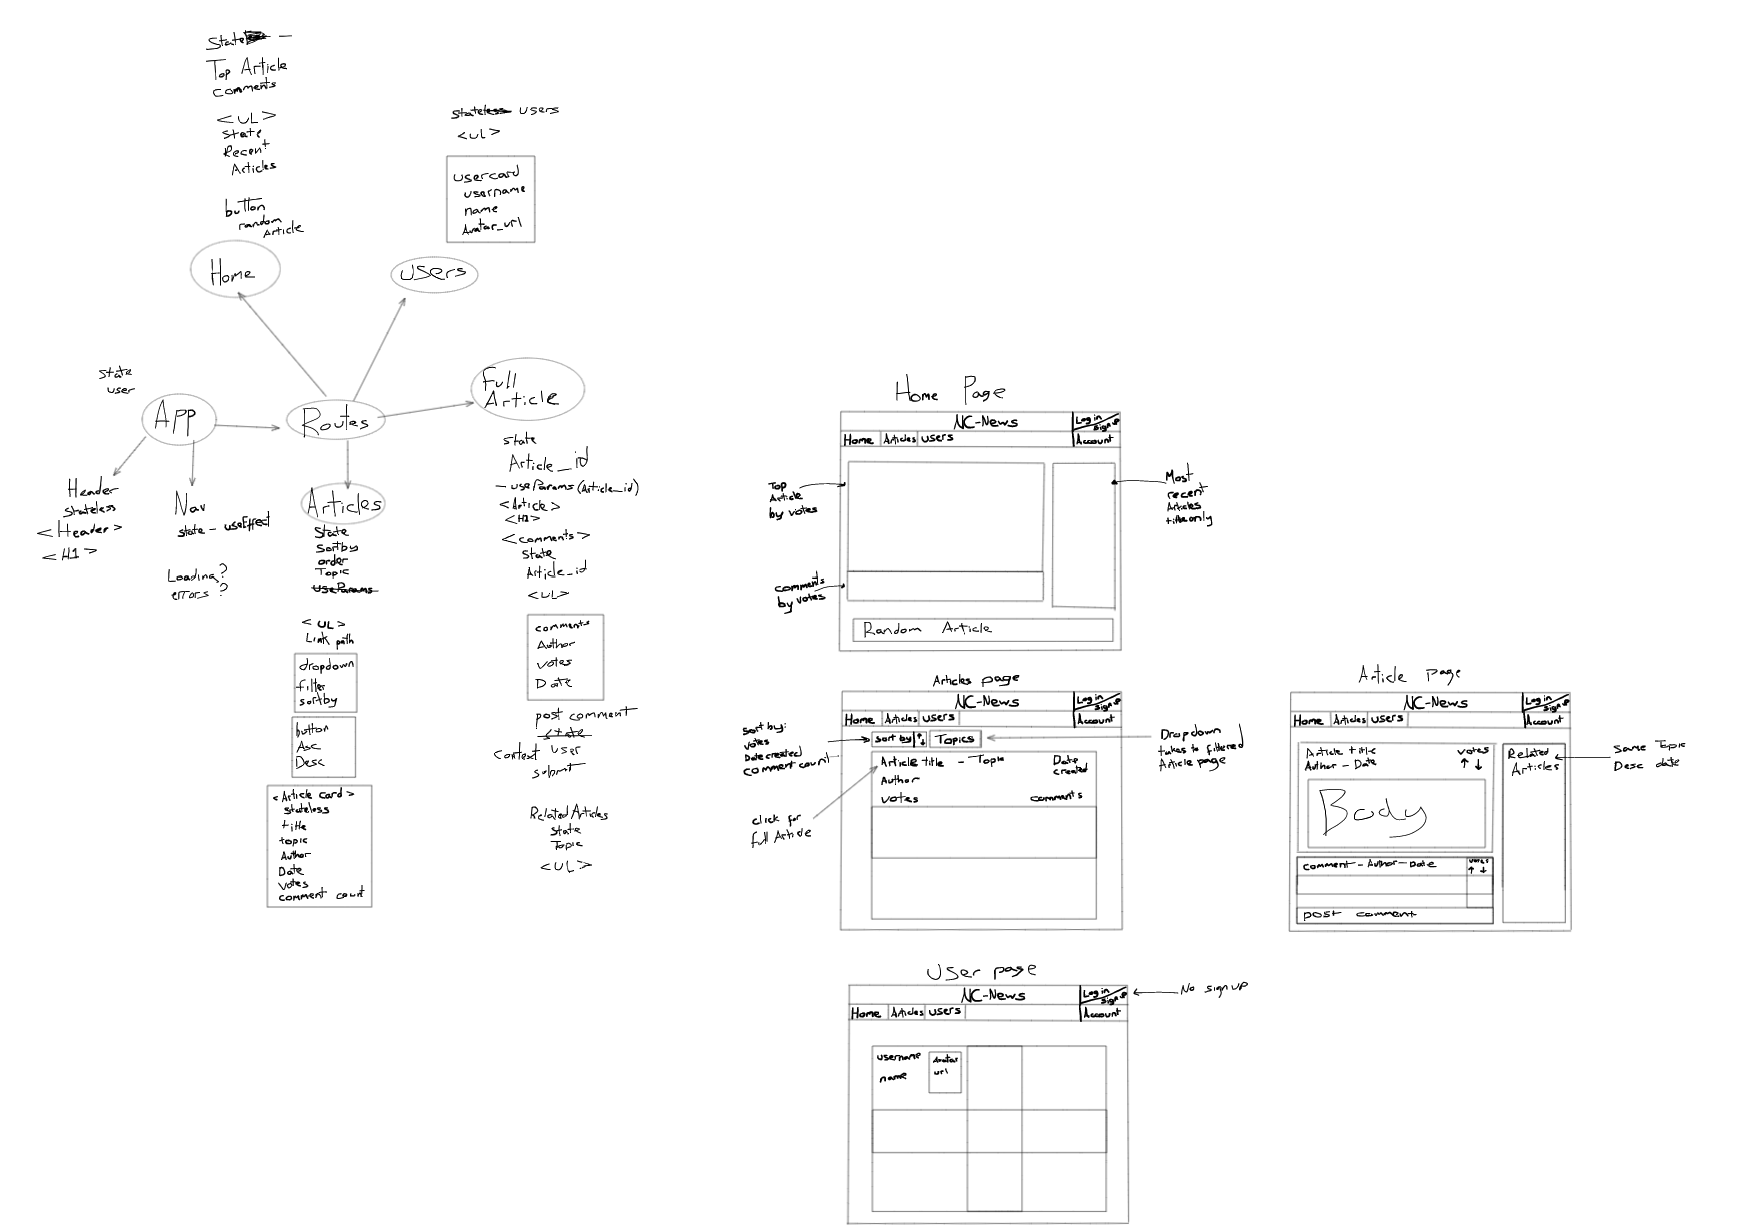 State —
Top Article
comments
<UL>
state
Recent
Articles
button
random
Article
Home
stateless users
<UL>
usercard
username
name
Avatar_url
users
state
user
App
Routes
Full
Article
Header
stateless
<Header>
<H1>
Nav
state - useEffect
Loading?
errors?
Articles
State
Sortby
order
Topic
useParams
<UL>
Link path
dropdown
filter
sortby
button
Asc
Desc
<Article card>
stateless
title
topic
Author
Date
votes
comment count
state
Article_id
- useParams(Article_id)
<Article>
<H1>
<comments>
State
Article_id
<UL>
comments
Author
votes
Date
post comment
state
context user
submit
Related Articles
state
Topic
<UL>
Home Page
NC-News
Log in
Sign up
Home Articles users
Account
Top
Article
by votes
Most
recent
Articles
title only
comments
by votes
Random Article
Articles page
NC-News
Log in
Sign up
Home Articles users
Account
Sort by:
votes
Date created
comment count
sort by ↑↓
Topics
Dropdown
takes to filtered
Article page
Article title - Topic
Date
created
Author
votes
comments
click for
full Article
Article page
NC-News
Log in
Sign up
Home Articles users
Account
Article title
Author - Date
votes
↑ ↓
Related
Articles
Same Topic
Desc date
Body
comment - Author - Date
votes
↑ ↓
post comment
User page
NC-News
Log in
Sign up
No sign up
Home Articles users
Account
username
name
Avatar
url